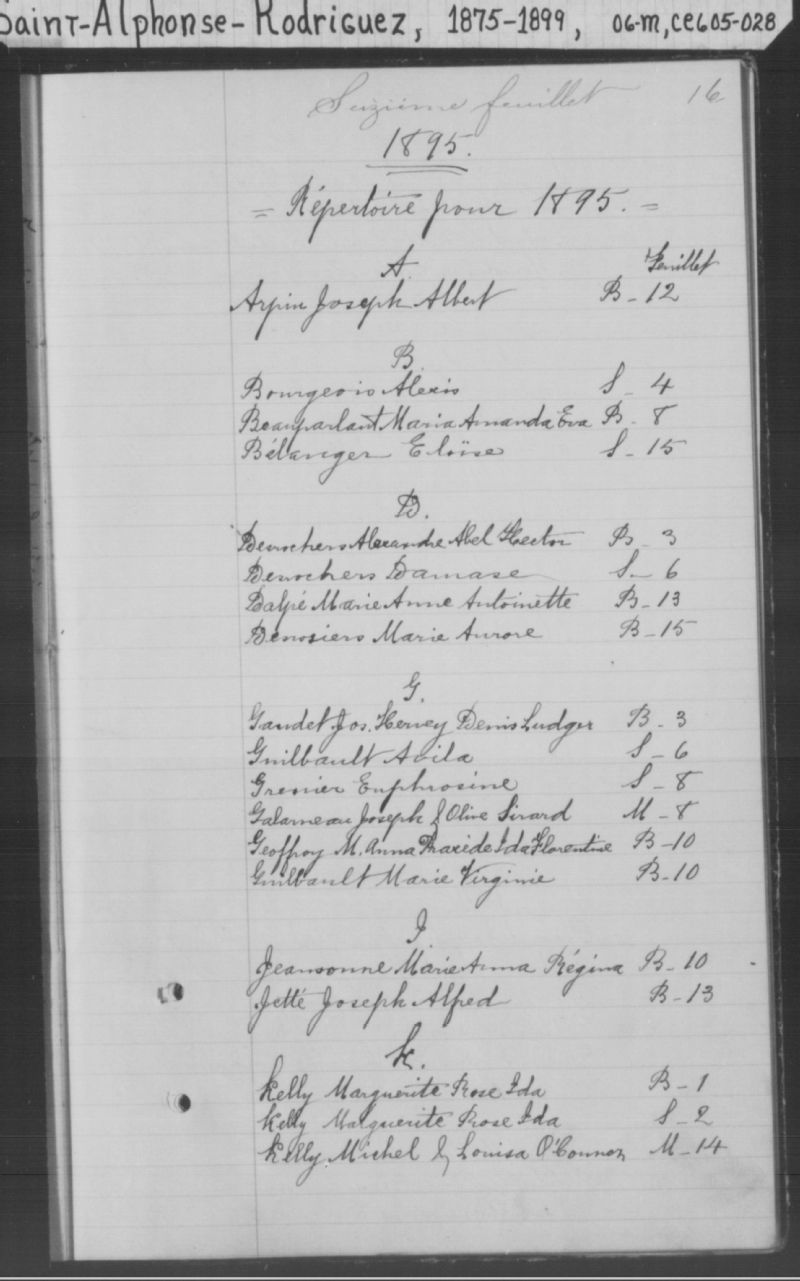 Saint-Alphonse-Rodriguez, 1875-1899, 06-M, CE605-028
Seizième feuillet 16
1895.
= Répertoire pour 1895. =
A Feuillet
Arpin Joseph Albert B - 12
B
Bourgeois Alexis S - 4
Beauparlant Maria Amanda Eva B - 8
Bélanger Eloïse S - 15
D.
Desrochers Alexandre Abel Hector B - 3
Desrochers Damase S - 6
Dalpé Marie Anne Antoinette B - 13
Desrosiers Marie Aurore B - 15
G.
Gaudet Jos. Hervey Denis Ludger B - 3
Guilbault Avila S - 6
Grenier Euphrosine S - 8
Galarneau Joseph & Olive Sirard M - 8
Geoffroy M. Anna Praxède Ida Florentine B - 10
Guilbault Marie Virginie B - 10
J
Jeansonne Marie Anna Régina B - 10
Jetté Joseph Alfred B - 13
K.
Kelly Marguerite Rose Ida B - 1
Kelly Marguerite Rose Ida S - 2
Kelly Michel & Louisa O'Connor M - 14